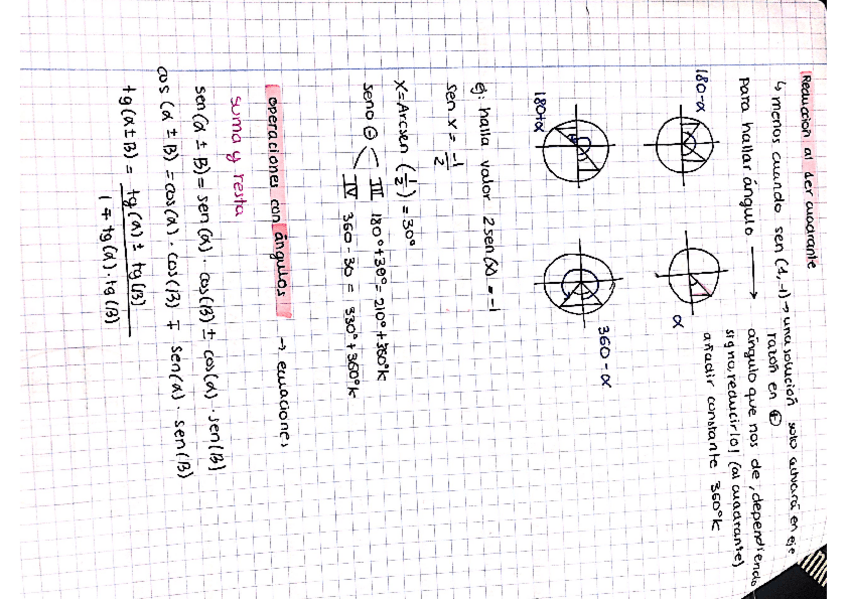 Reducción al 1er cuadrante
↳ menos cuando sen (1,-1) → una solución solo en eje
razón en ⊕
para hallar ángulo → ángulo que nos de, dependiendo
signo, reducirlo! (al cuadrante)
añadir constante 360°k
180-α
α
180+α
360-α
ej: halla valor 2sen(x) = -1
sen x = -1/2
x = Arcsen (1/2) = 30°
seno ⊖
III 180°+30° = 210° + 360°k
IV 360-30 = 330° + 360°k
operaciones con ángulos → ecuaciones
suma y resta
sen(α ± B) = sen(α) · cos(B) ± cos(α) · sen(B)
cos(α ± B) = cos(α) · cos(B) ∓ sen(α) · sen(B)
tg(α ± B) = tg(α) ± tg(B) / 1 ∓ tg(α) · tg(B)